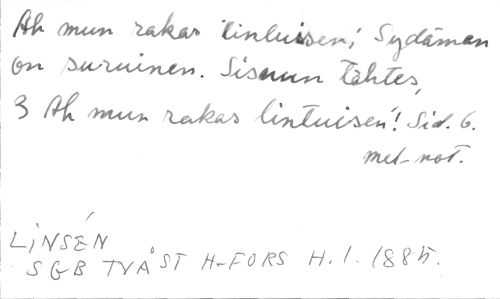 Ah mun rakas lintuisen; Sydämen
on suruinen. Sismun tähtes,
3 Ah mun rakas lintuisen! Sid. 6.
mel-not.
LINSÉN
SGB TVÅST H-FORS H.1. 1885.